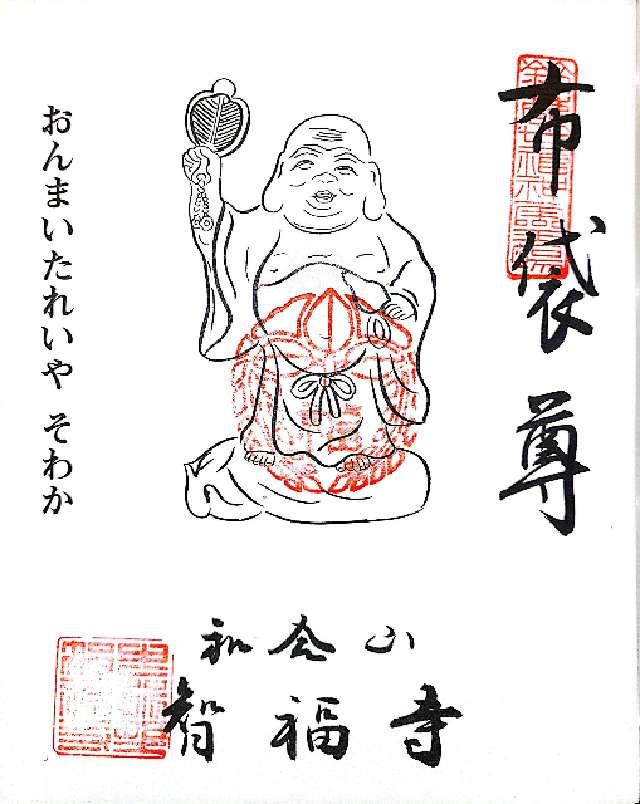 布袋尊
おんまいたれいや そわか
山
智福寺